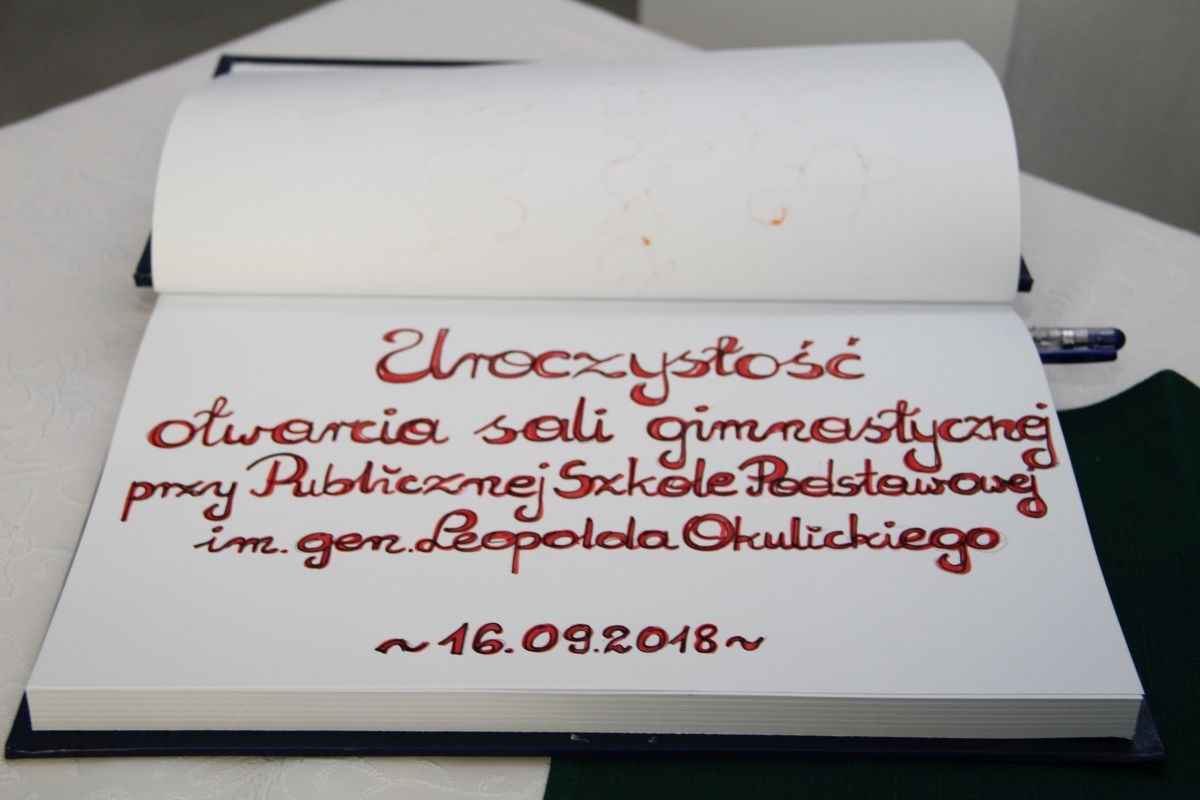 Uroczystość
otwarcia sali gimnastycznej
przy Publicznej Szkole Podstawowej
im. gen. Leopolda Okulickiego
~16.09.2018~